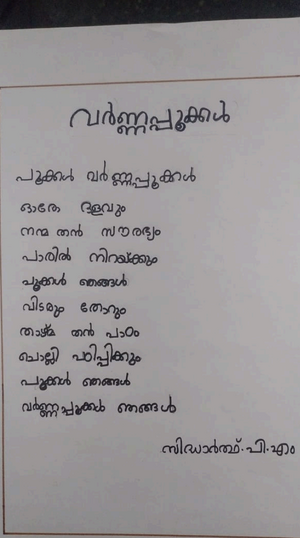 വർണ്ണപ്പൂക്കൾ
പൂക്കൾ വർണ്ണപ്പൂക്കൾ
ഓരോ ദളവും
നന്മ തൻ സൗരഭ്യം
പാരിൽ നിറയ്ക്കും
പൂക്കൾ ഞങ്ങൾ
വിടരും തോറും
താഴ്മ തൻ പാഠം
ചൊല്ലി പഠിപ്പിക്കും
പൂക്കൾ ഞങ്ങൾ
വർണ്ണപ്പൂക്കൾ ഞങ്ങൾ
സിദ്ധാർത്ഥ്.പി.എം